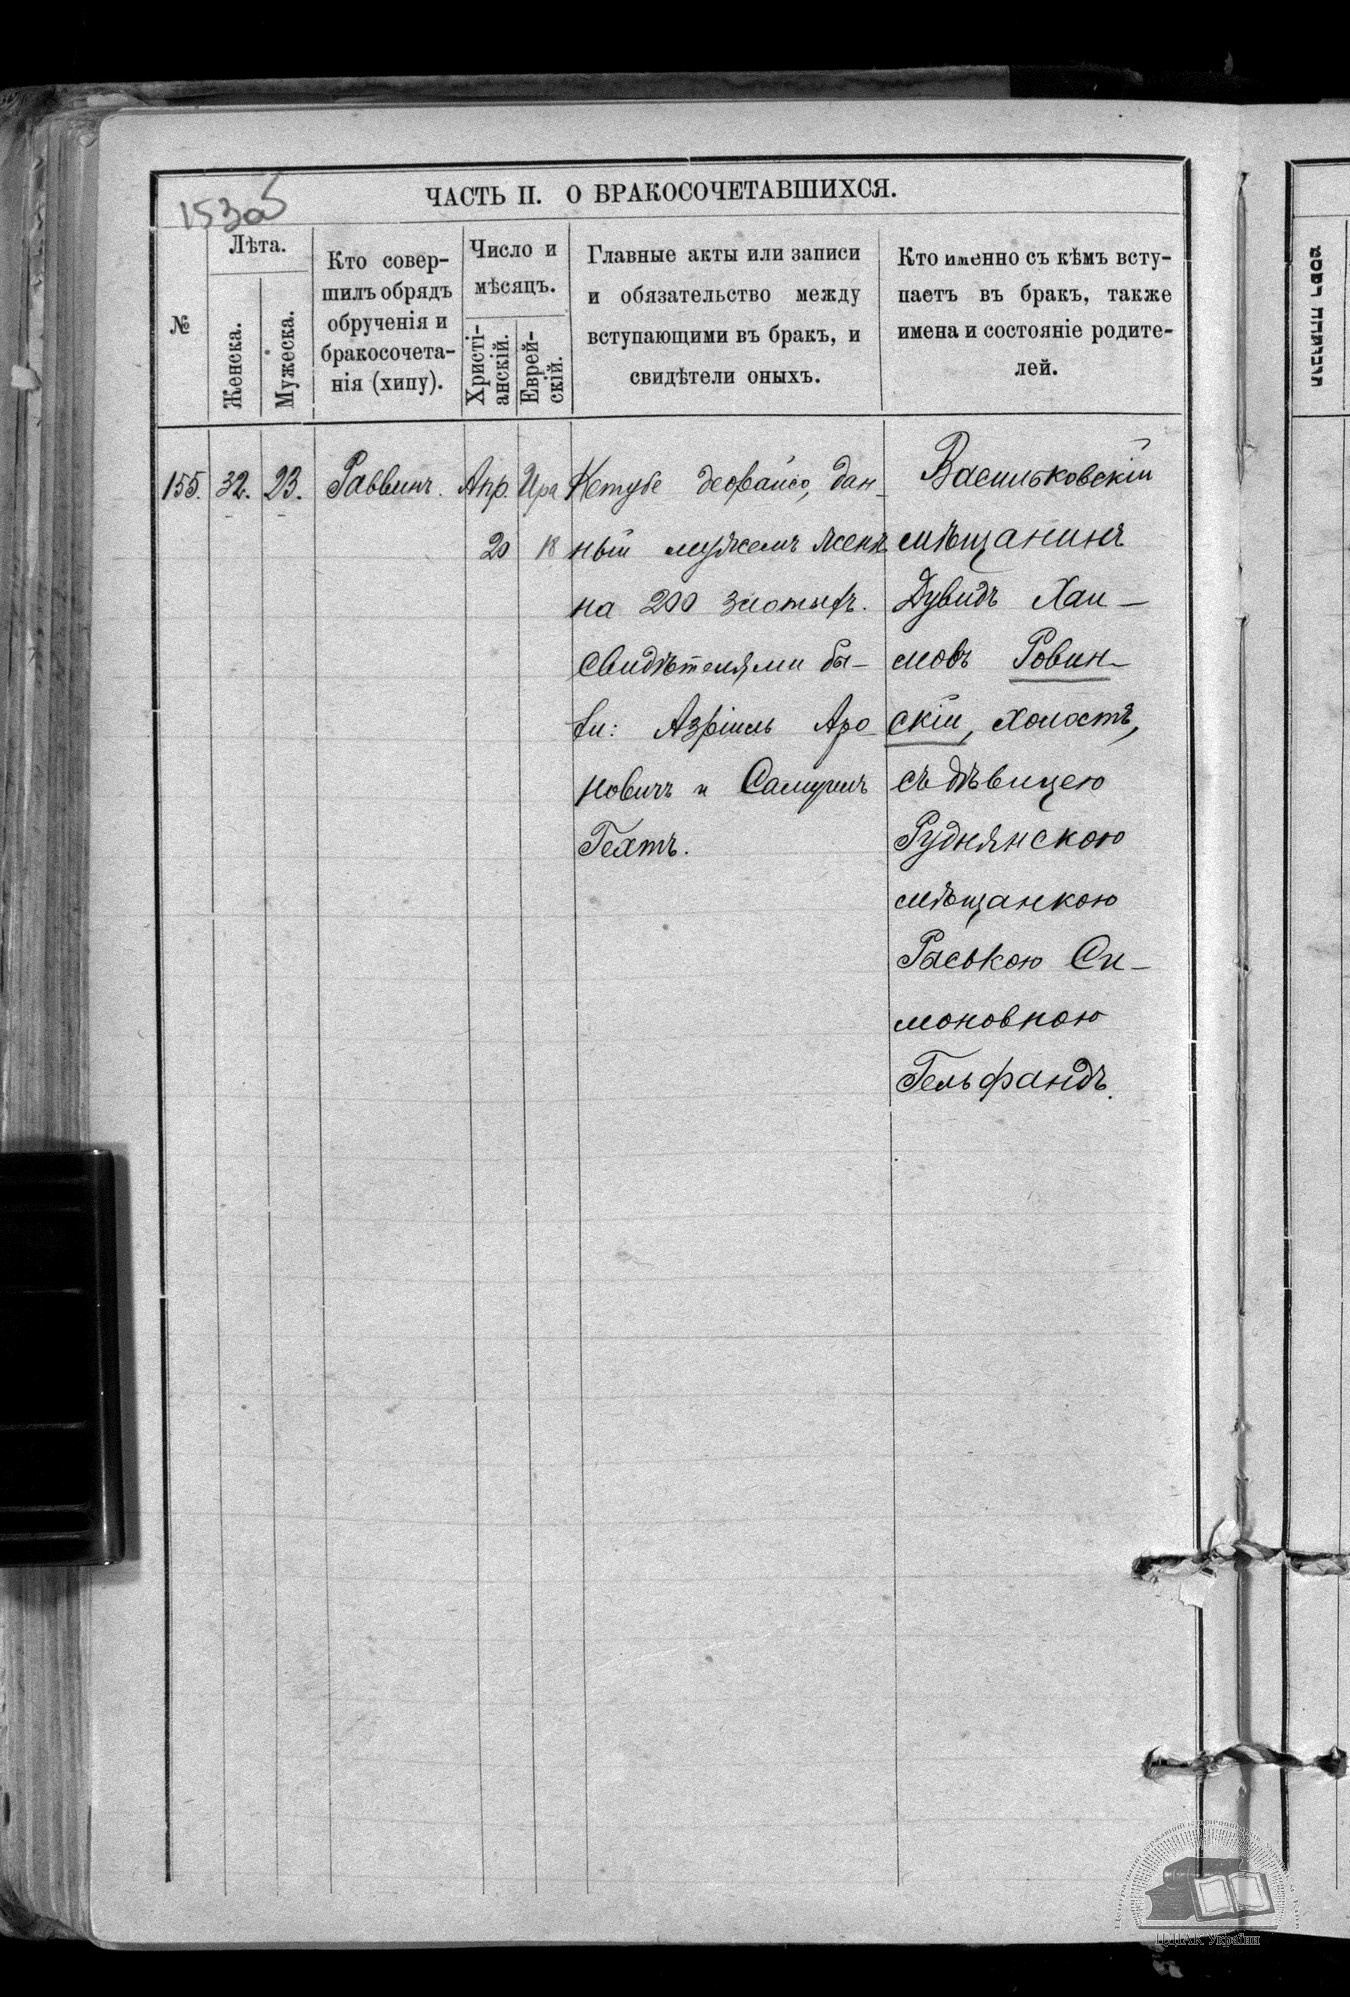 153об
ЧАСТЬ II. О БРАКОСОЧЕТАВШИХСЯ.
№
Лѣта.
Женска.
Мужеска.
Кто совер-
шилъ обрядъ
обрученія и
бракосочета-
нія (хипу).
Число и
мѣсяцъ.
Христі-
анскій.
Еврей-
скій.
Главные акты или записи
и обязательство между
вступающими въ бракъ, и
свидѣтели оныхъ.
Кто именно съ кѣмъ всту-
паетъ въ бракъ, также
имена и состояніе родите-
лей.
155.
32.
23.
Раввинъ.
Апр.
20
Ира
18
Кетубе деорайсо, дан-
ный мужемъ женѣ
на 200 злотыхъ.
Свидѣтелями бы-
ли: Азріиль Аро
новичъ и Самуилъ
Гехтъ.
Васильковскій
мѣщанинъ
Дувидъ Хаи-
мовъ Ровин-
скій, холостъ,
съ дѣвицею
Руднянскою
мѣщанкою
Раською Си-
моновною
Гельфандъ.
ЦДІАК України